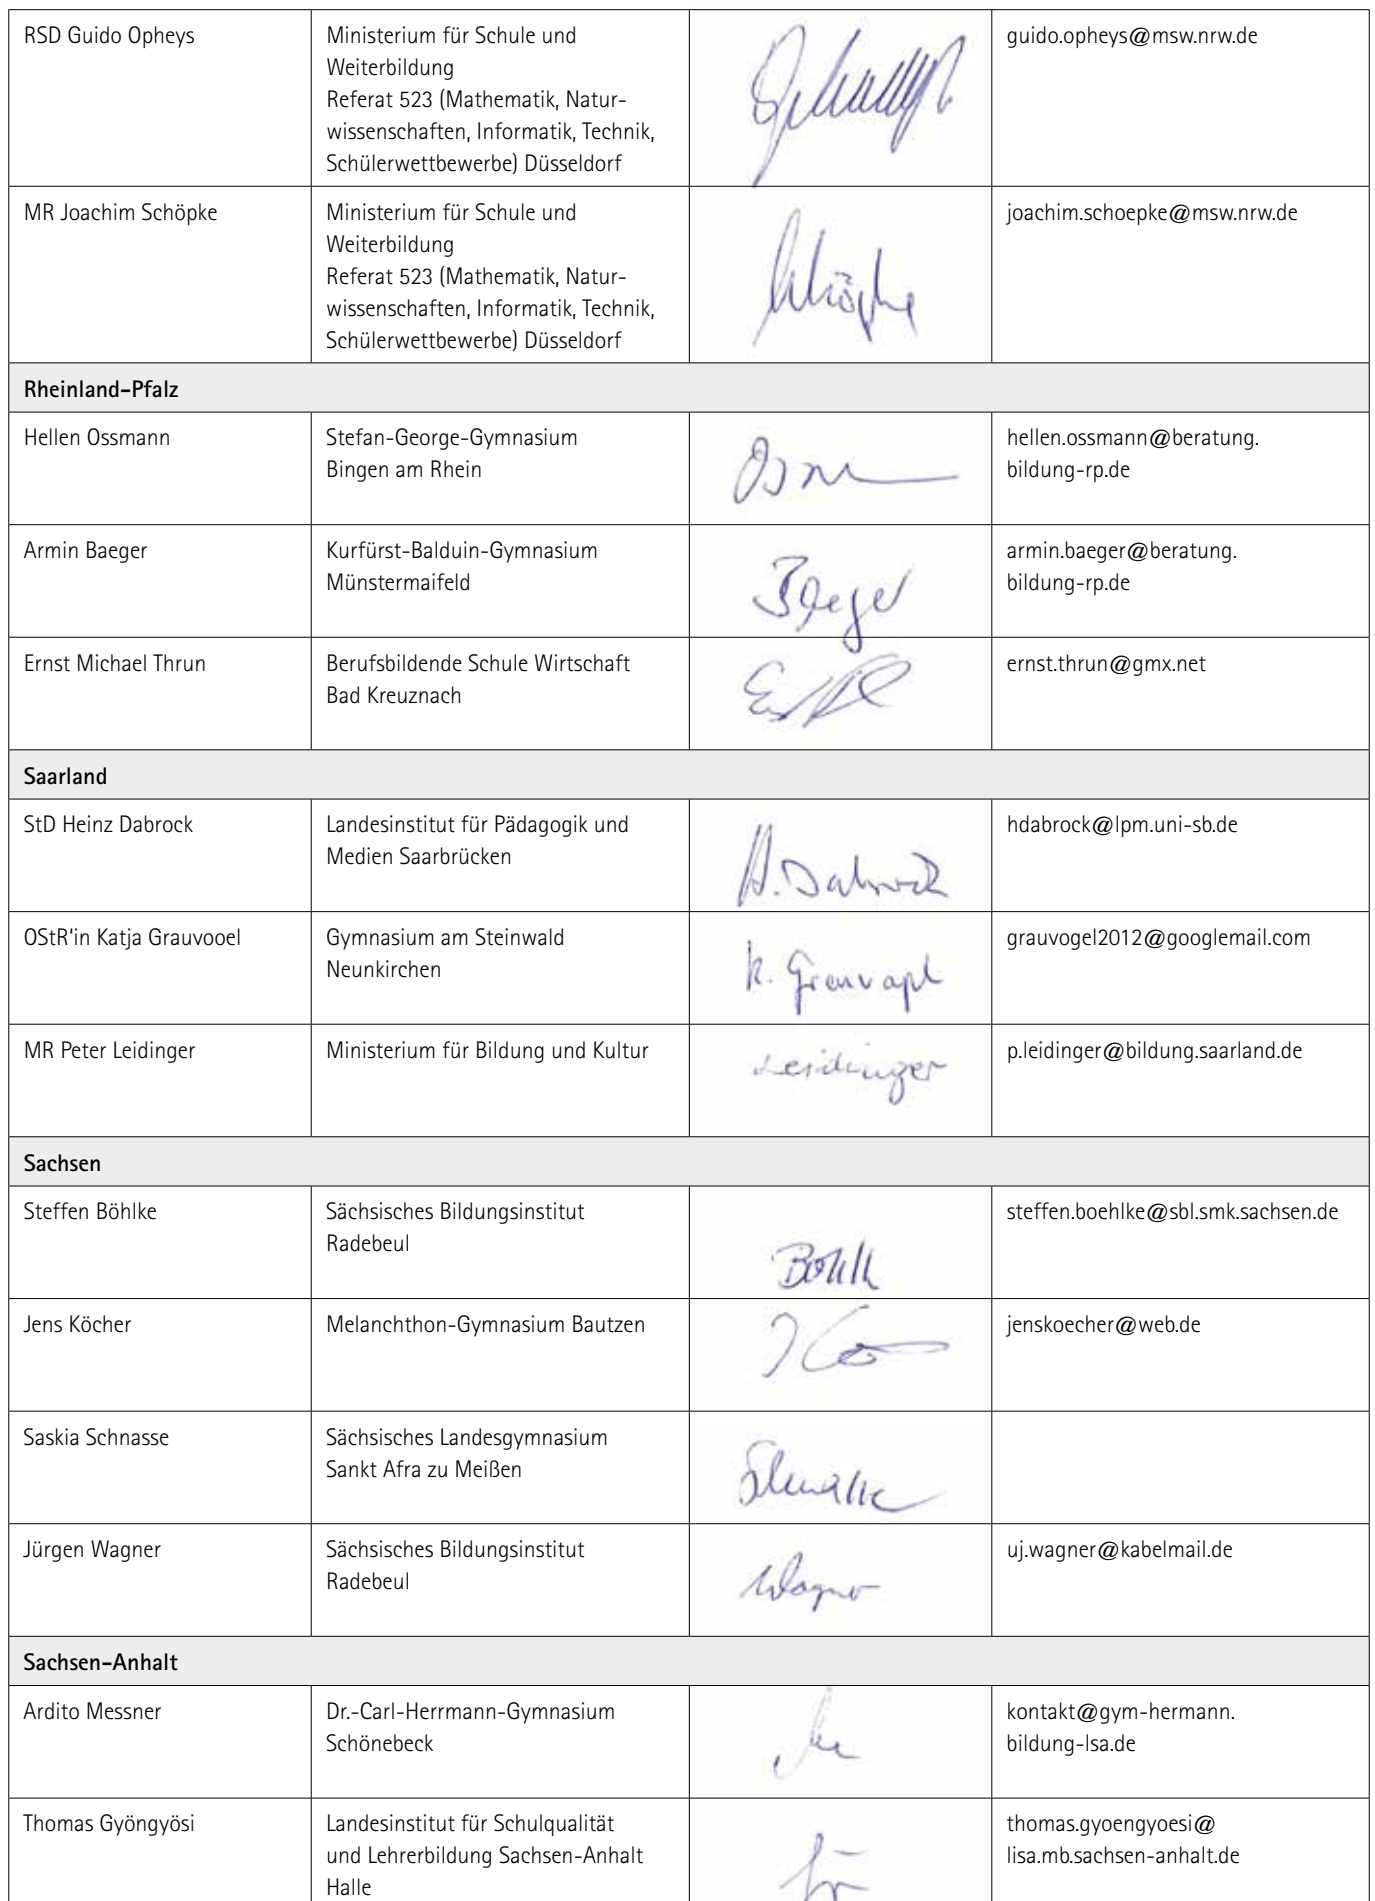 RSD Guido Opheys
Ministerium für Schule und
Weiterbildung
Referat 523 (Mathematik, Natur-
wissenschaften, Informatik, Technik,
Schülerwettbewerbe) Düsseldorf
guido.opheys@msw.nrw.de
MR Joachim Schöpke
Ministerium für Schule und
Weiterbildung
Referat 523 (Mathematik, Natur-
wissenschaften, Informatik, Technik,
Schülerwettbewerbe) Düsseldorf
Schöpke
joachim.schoepke@msw.nrw.de
Rheinland-Pfalz
Hellen Ossmann
Stefan-George-Gymnasium
Bingen am Rhein
hellen.ossmann@beratung.
bildung-rp.de
Armin Baeger
Kurfürst-Balduin-Gymnasium
Münstermaifeld
Baeger
armin.baeger@beratung.
bildung-rp.de
Ernst Michael Thrun
Berufsbildende Schule Wirtschaft
Bad Kreuznach
ernst.thrun@gmx.net
Saarland
StD Heinz Dabrock
Landesinstitut für Pädagogik und
Medien Saarbrücken
H. Dabrock
hdabrock@lpm.uni-sb.de
OStR'in Katja Grauvooel
Gymnasium am Steinwald
Neunkirchen
K. Grauvogel
grauvogel2012@googlemail.com
MR Peter Leidinger
Ministerium für Bildung und Kultur
Leidinger
p.leidinger@bildung.saarland.de
Sachsen
Steffen Böhlke
Sächsisches Bildungsinstitut
Radebeul
steffen.boehlke@sbl.smk.sachsen.de
Jens Köcher
Melanchthon-Gymnasium Bautzen
jenskoecher@web.de
Saskia Schnasse
Sächsisches Landesgymnasium
Sankt Afra zu Meißen
Jürgen Wagner
Sächsisches Bildungsinstitut
Radebeul
Wagner
uj.wagner@kabelmail.de
Sachsen-Anhalt
Ardito Messner
Dr.-Carl-Herrmann-Gymnasium
Schönebeck
kontakt@gym-hermann.
bildung-lsa.de
Thomas Gyöngyösi
Landesinstitut für Schulqualität
und Lehrerbildung Sachsen-Anhalt
Halle
thomas.gyoengyoesi@
lisa.mb.sachsen-anhalt.de